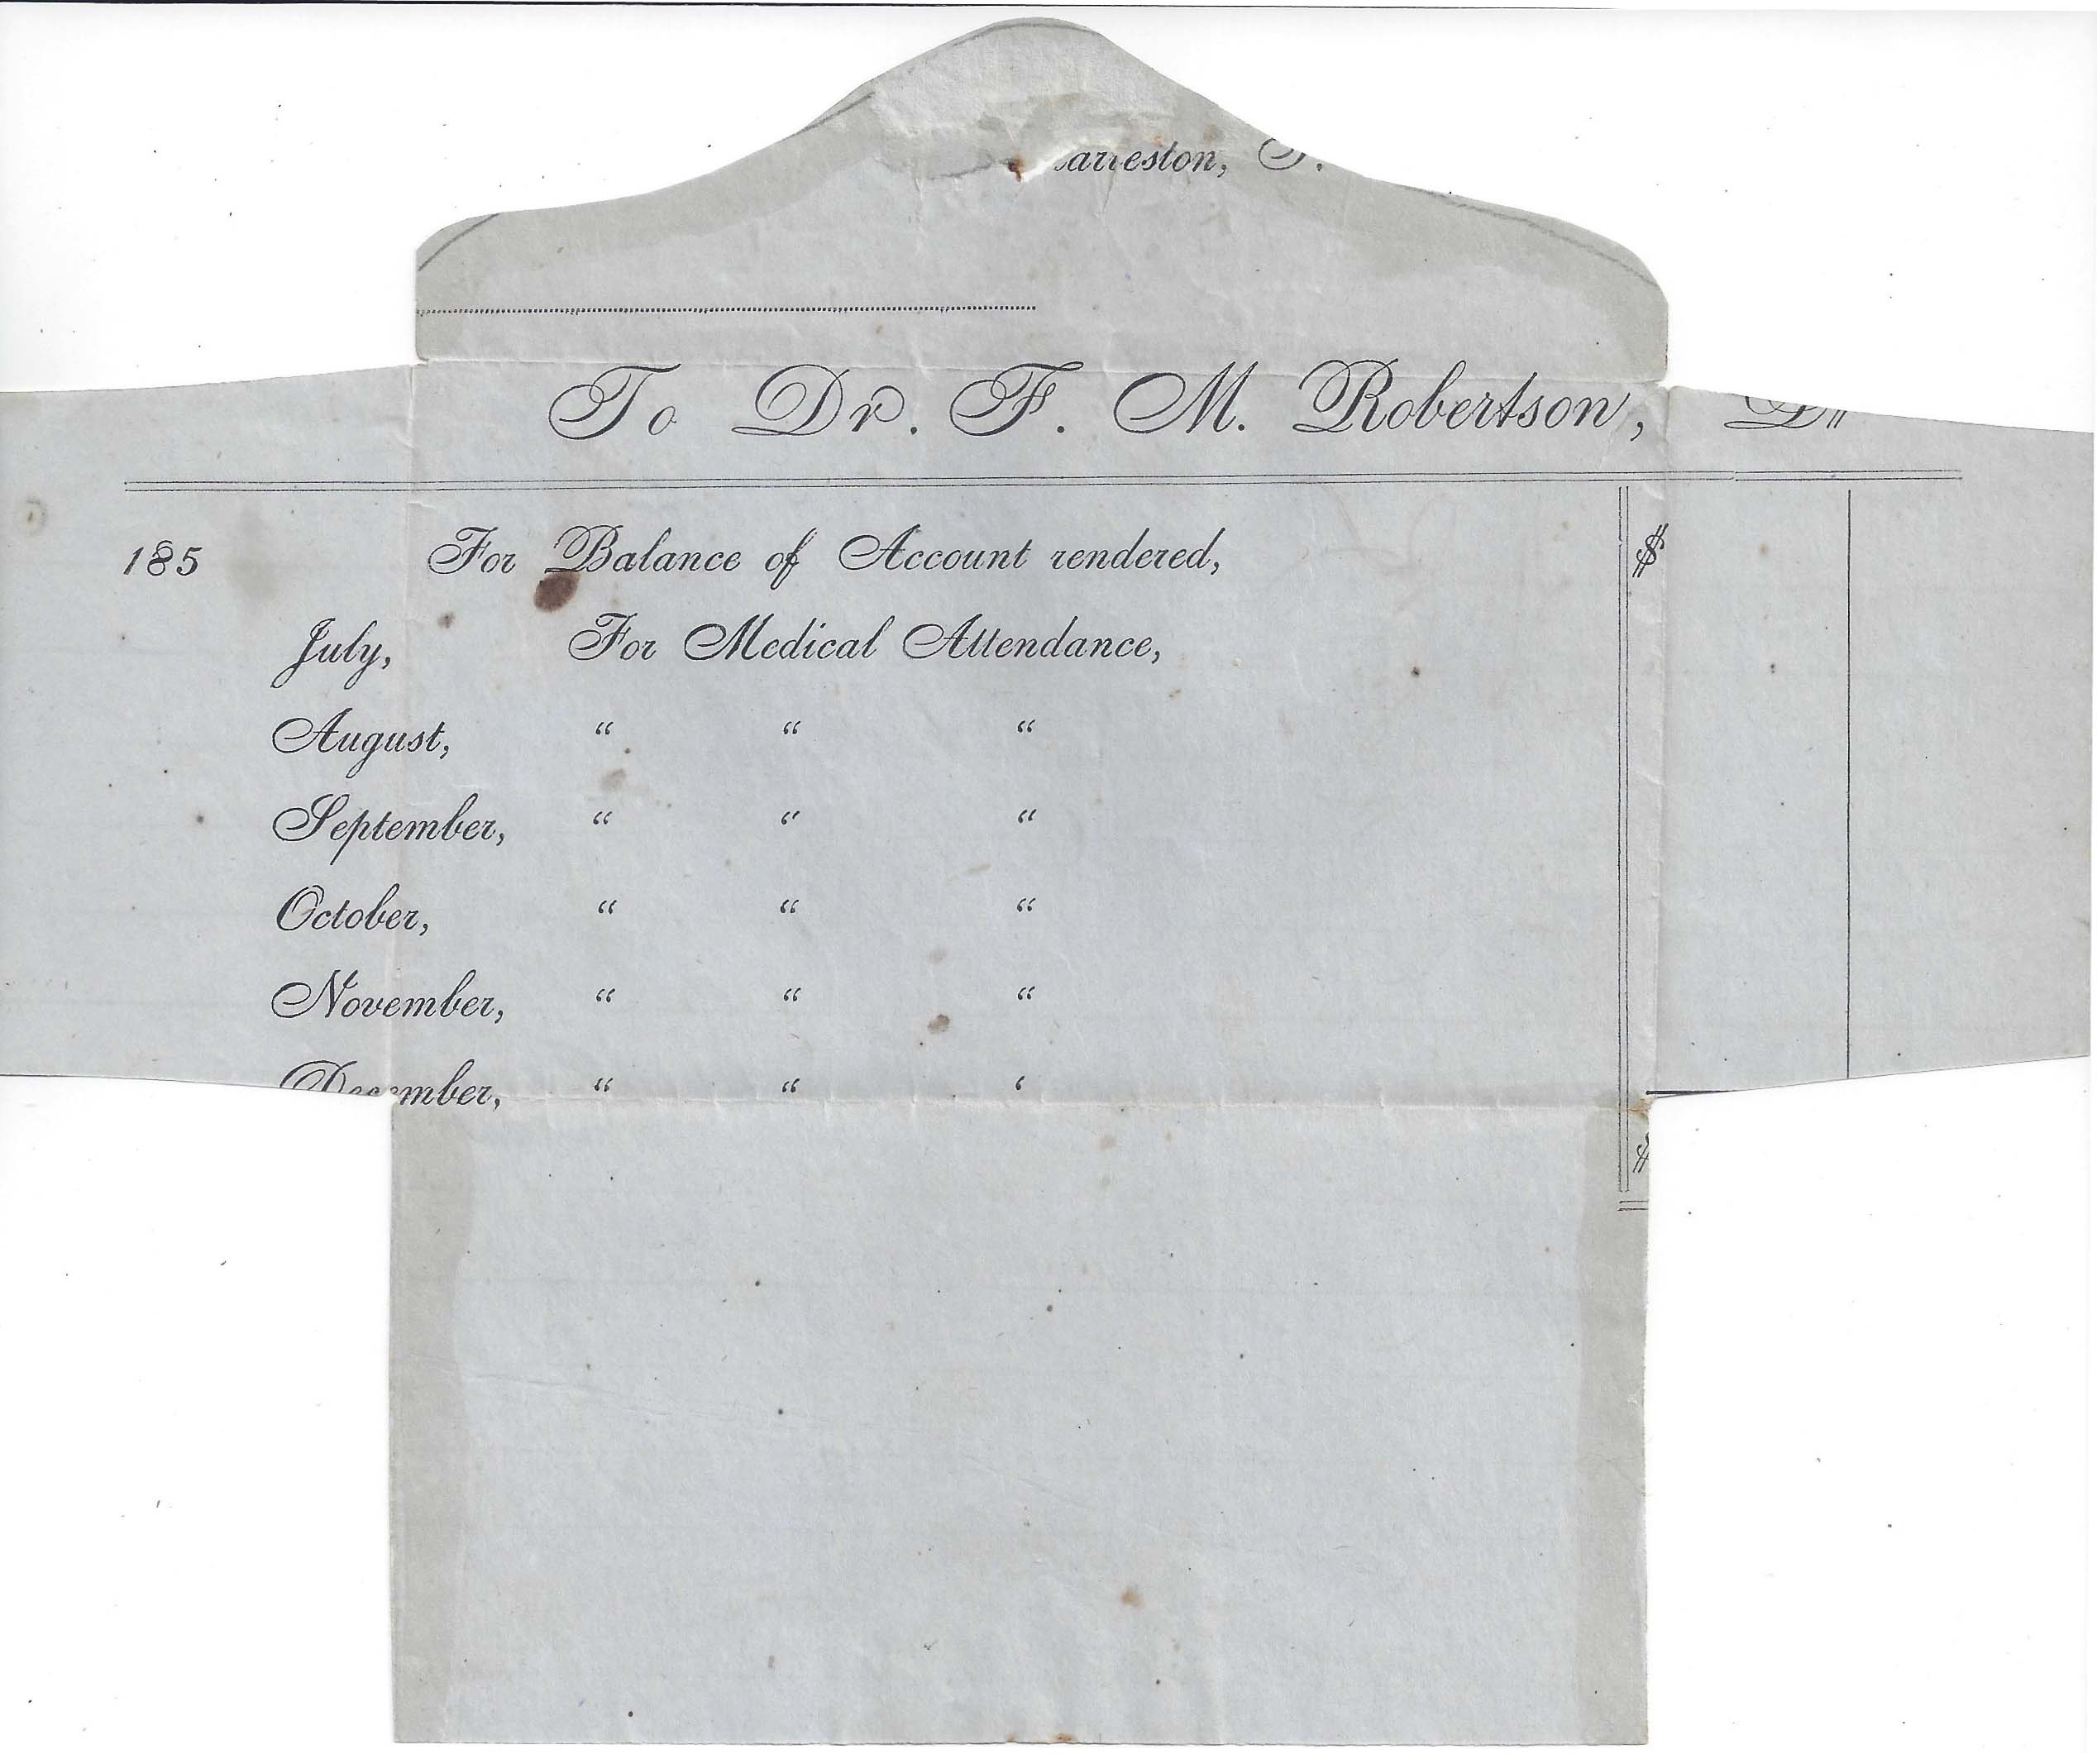 To Dr. F. M. Robertson, Dr
185 For Balance of Account rendered, $
July, For Medical Attendance,
August, “ “ “
September, “ “ “
October, “ “ “
November, “ “ “
December, “ “ “
$